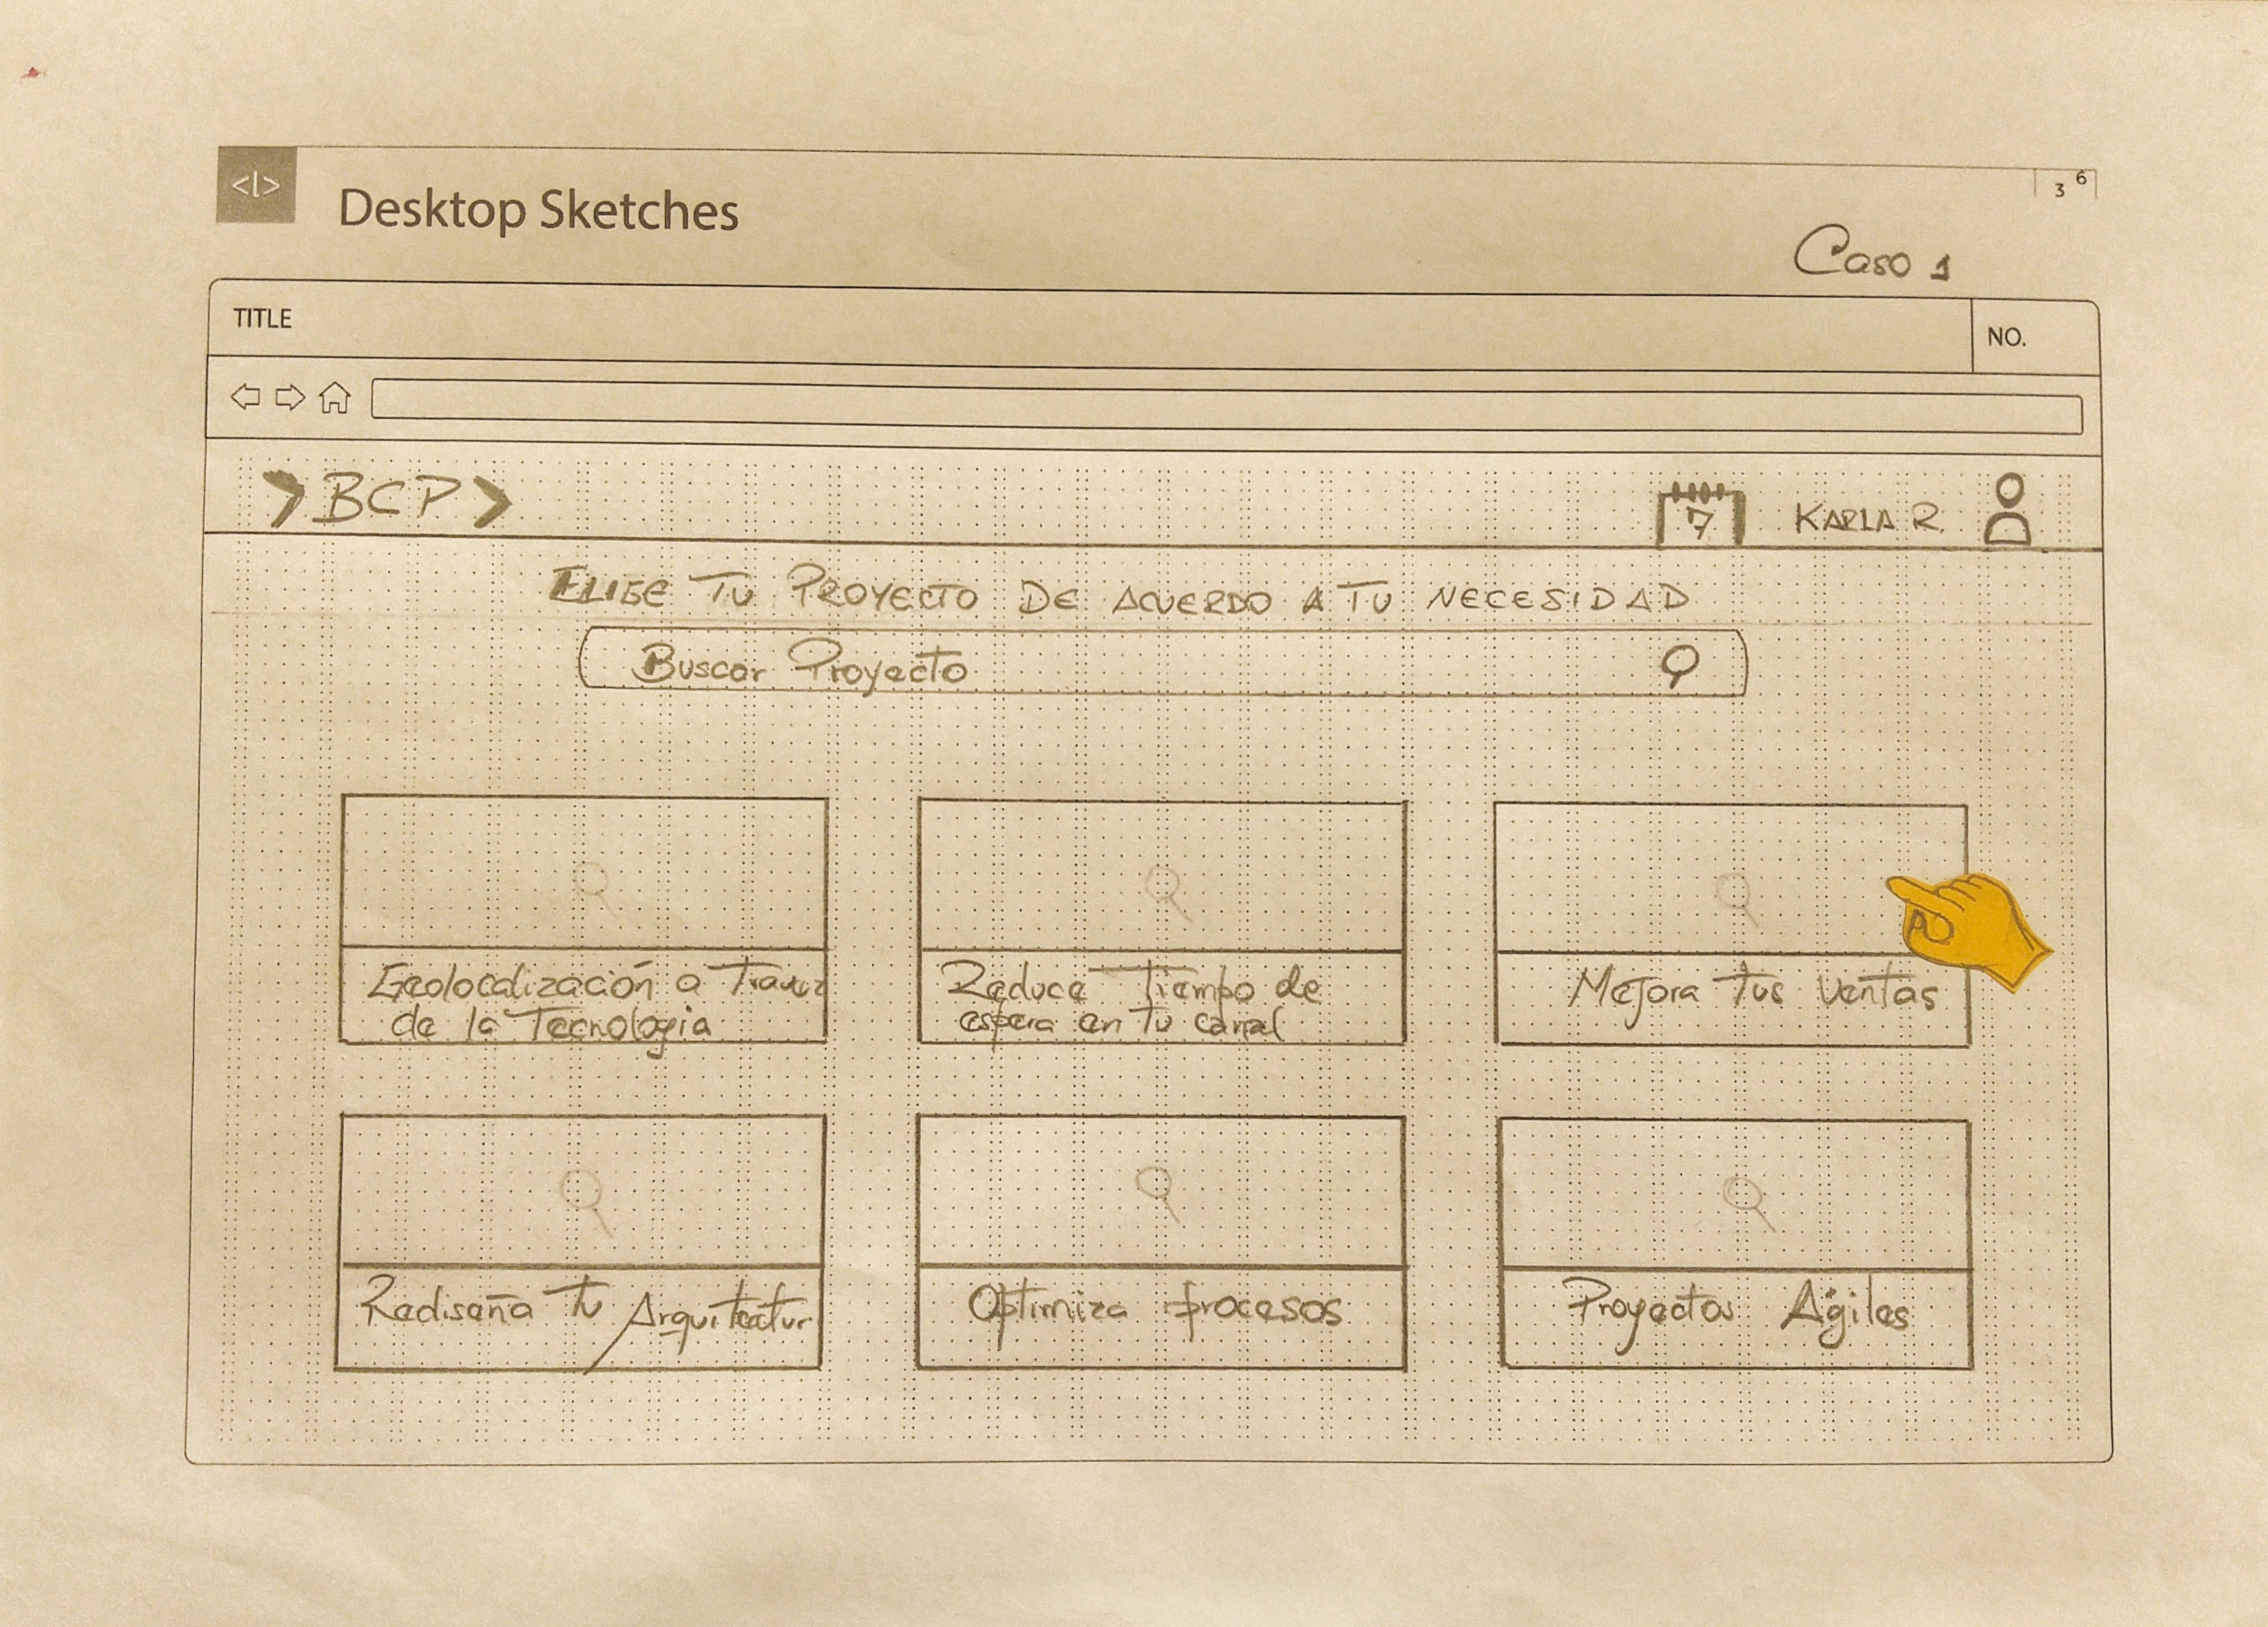 <|>
Desktop Sketches
3 6
Caso 1
TITLE
NO.
BCP
7
KARLA R.
ELIGE TU PROYECTO DE ACUERDO A TU NECESIDAD
Buscar Proyecto
Geolocalización a Travez
de la Tecnologia
Reduce Tiempo de
espera en tu canal
Mejora tus Ventas
Rediseña tu Arquitectur
Optimiza procesos
Proyectos Agiles